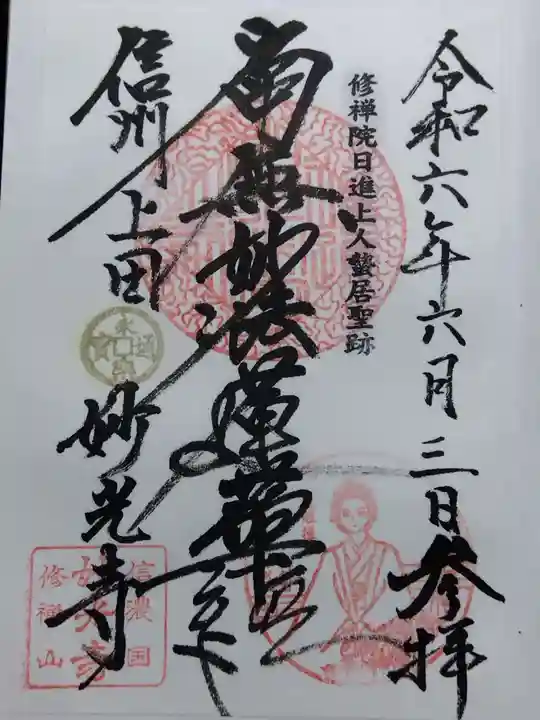 令和六年六月三日参拝
修禅院日進上人蟄居聖跡
南無妙法蓮華経
信州上田
妙光寺
信濃国
妙光寺
修禅山